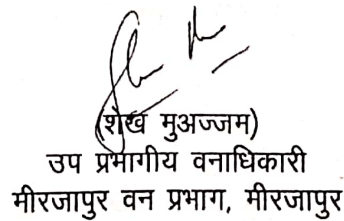 (शेख मुअज्जम)
उप प्रभागीय वनाधिकारी
मीरजापुर वन प्रभाग, मीरजापुर